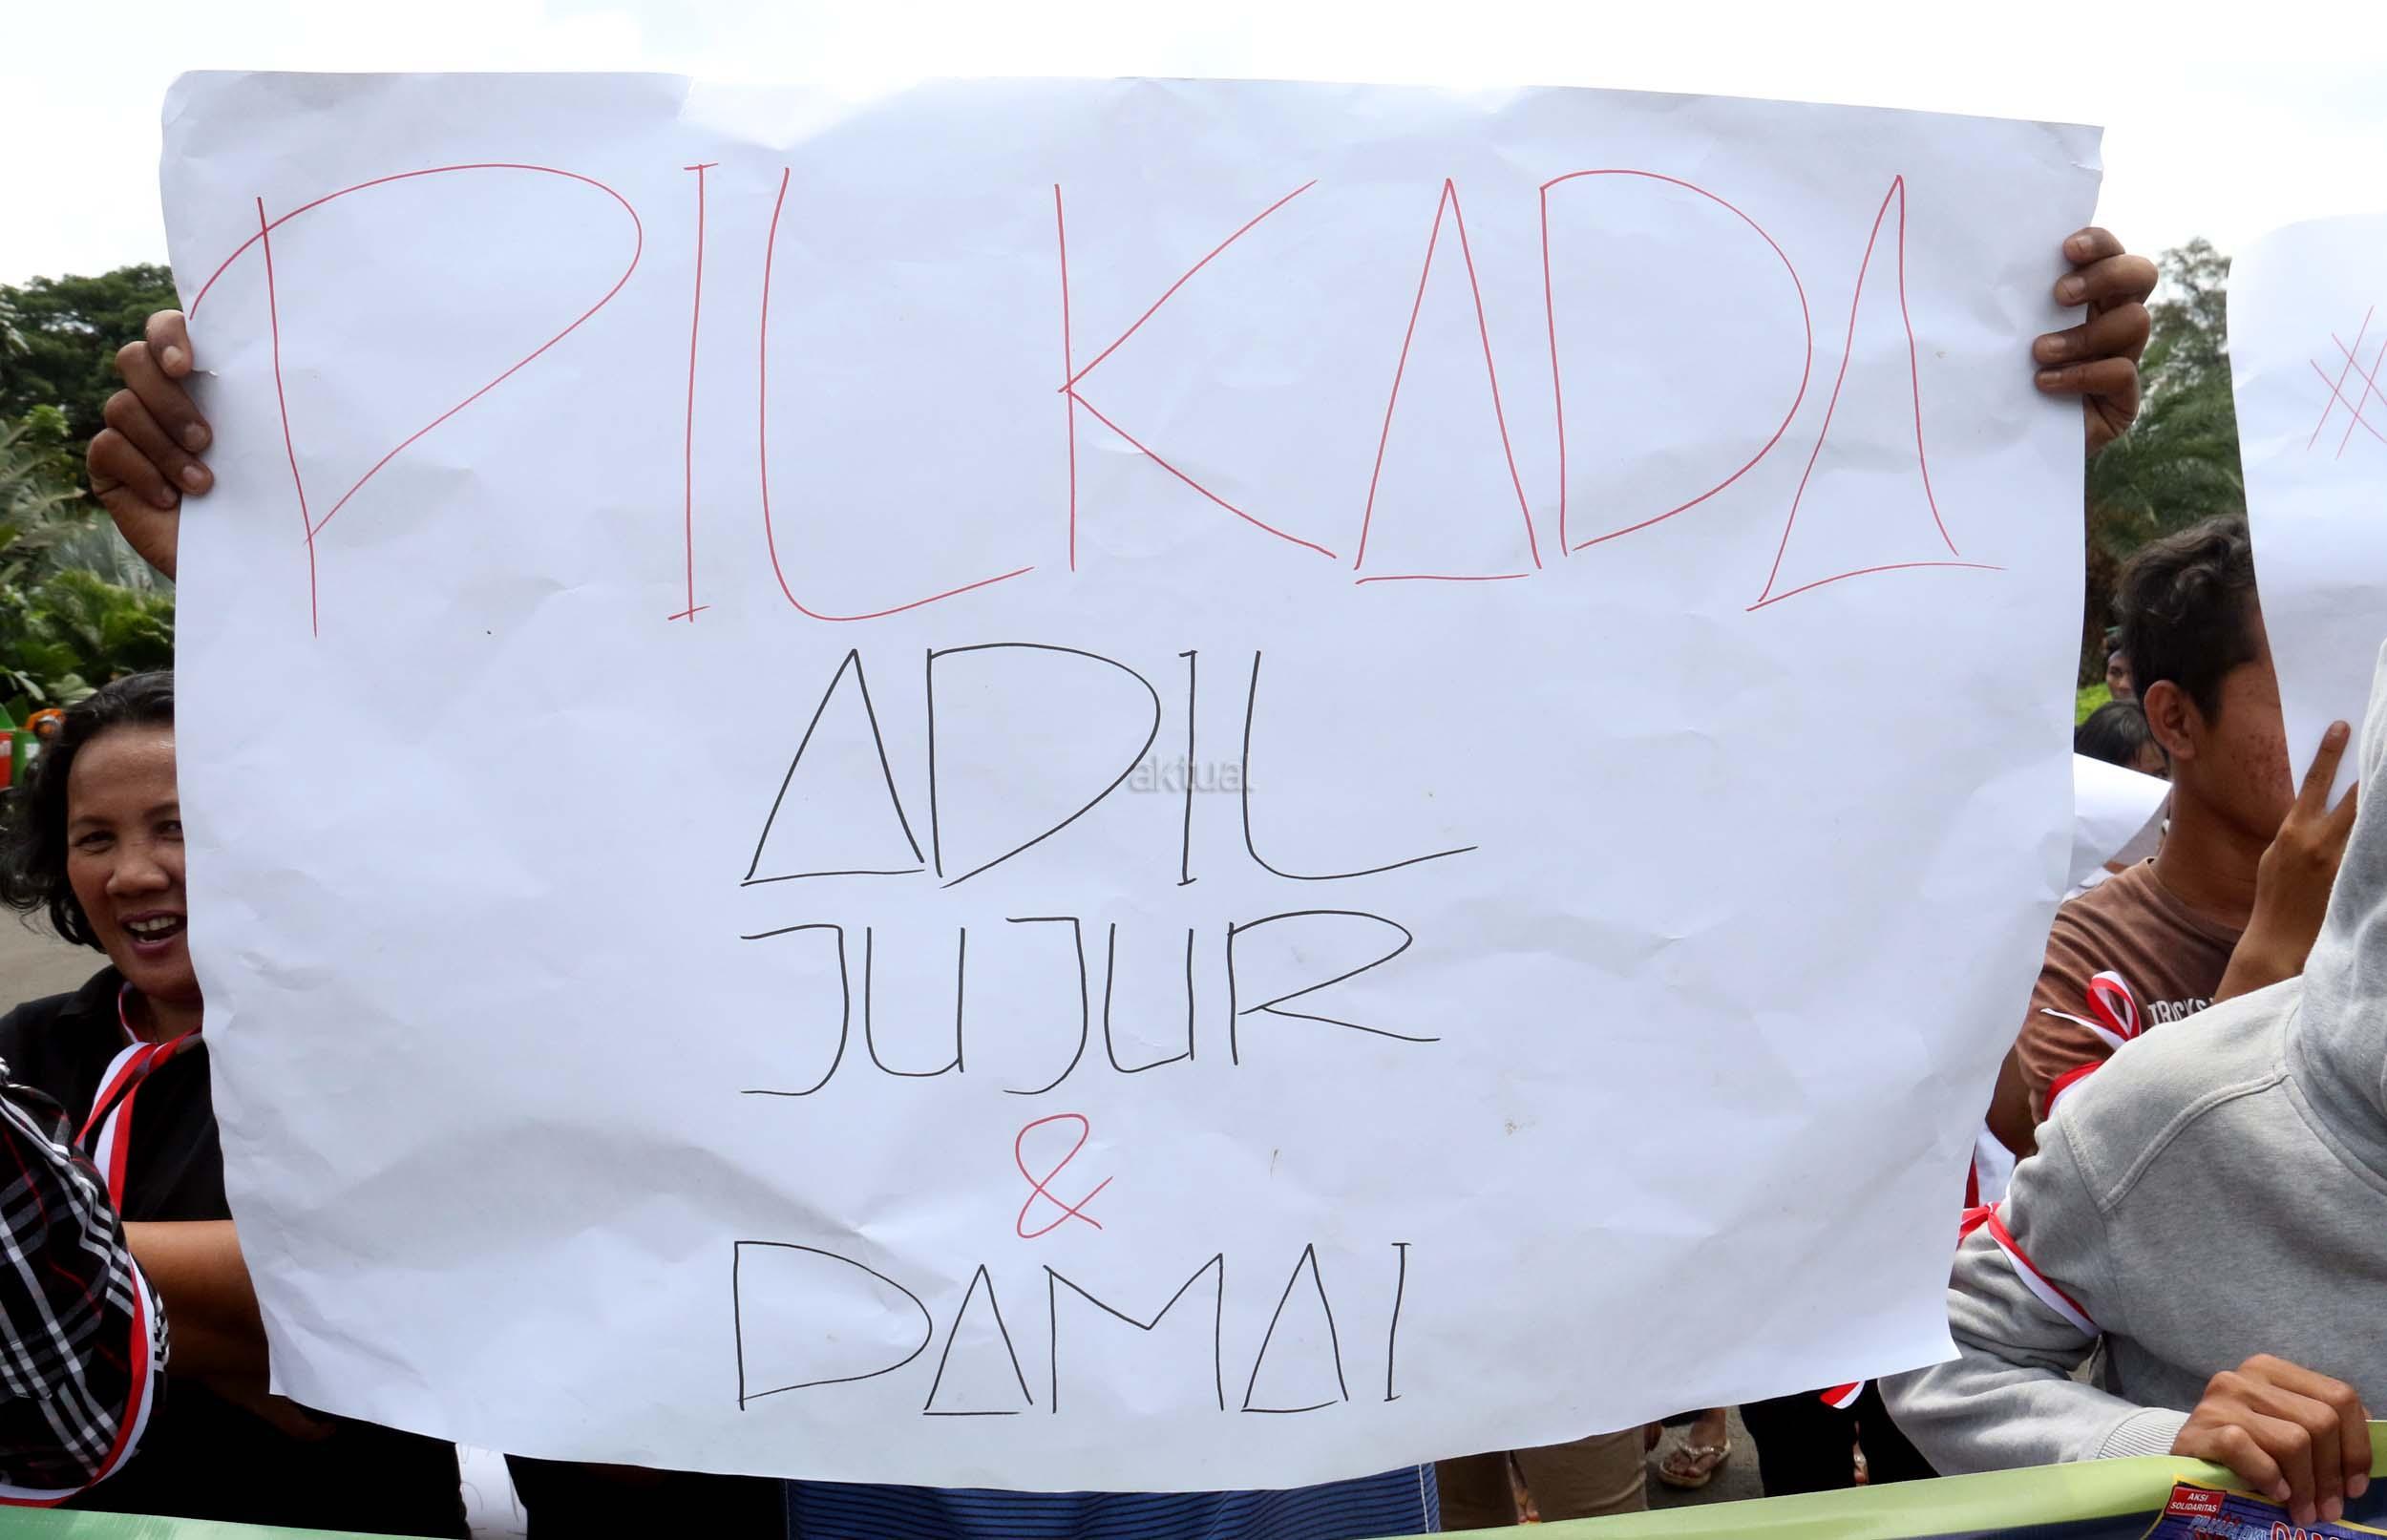 PILKADA
ADIL
aktual
JUJUR
&
DAMAI
TRICKS
AKSI
SOLIDARITAS